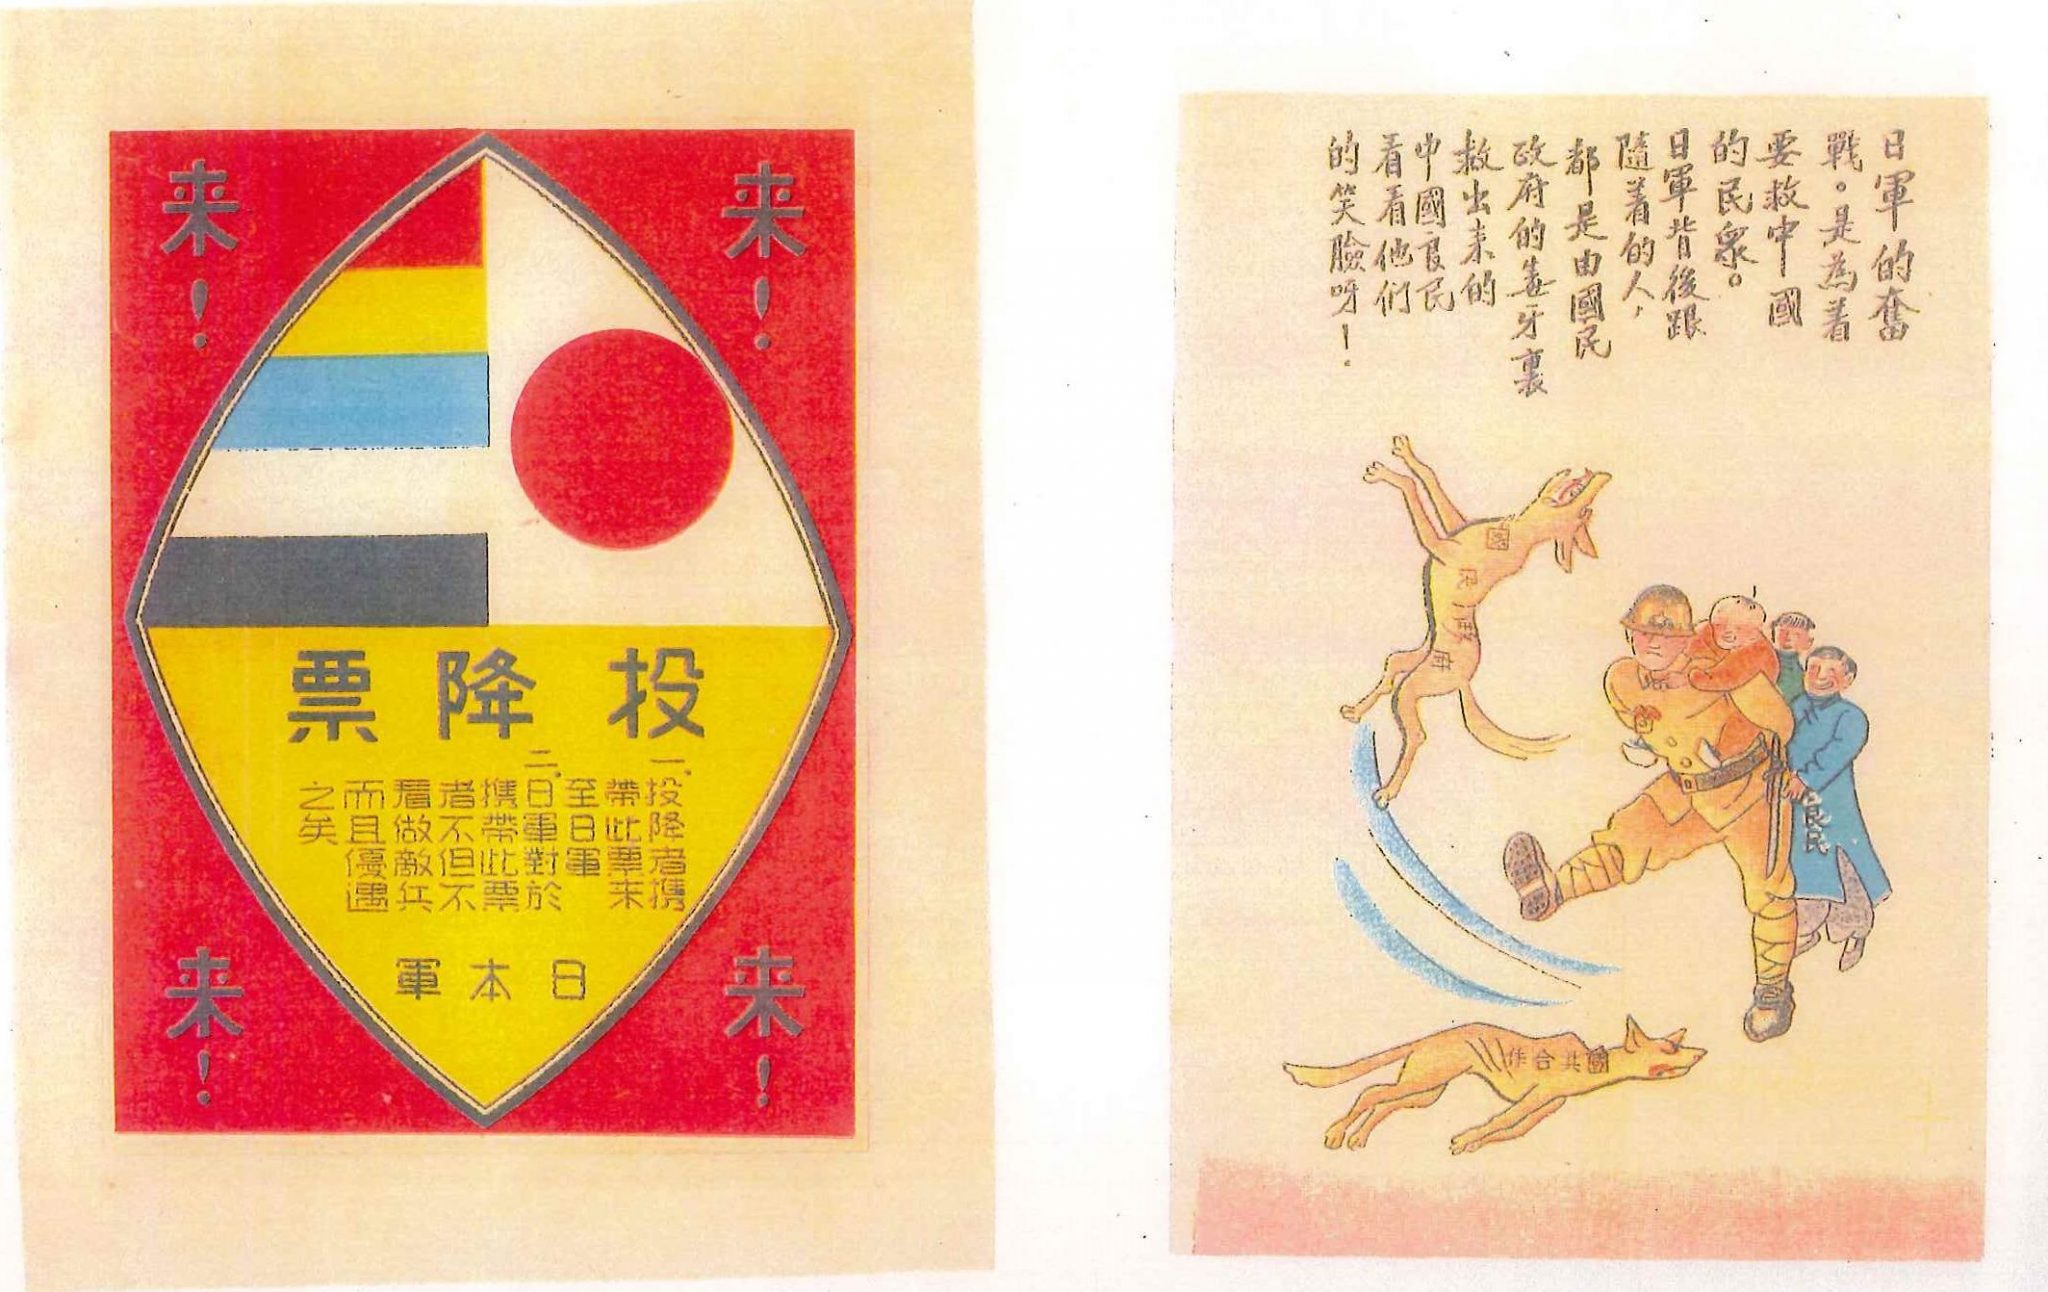 来！
来！
投降票
一、投降者携
帶此票来
至日軍
二、日軍對於
携帶此票
者不但不
看做敵兵
而且優遇
之矣
日本軍
来！
来！
日軍的奮
戰。是為着
要救中國
的民衆。
日軍背後跟
隨着的人，
都是由國民
政府的毒牙裏
救出来的
中國良民
看看他們
的笑臉呀！
國民政府
良民
國共合作